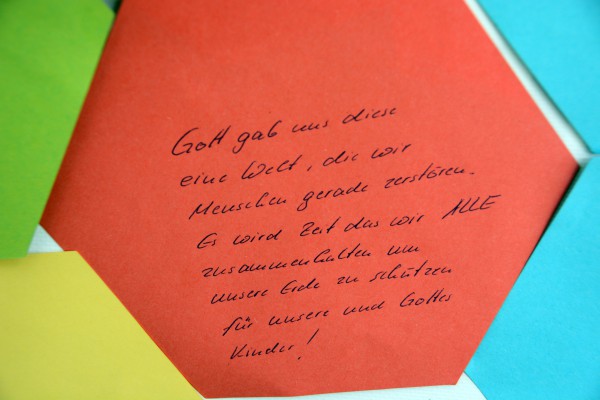 Gott gab uns diese
eine Welt, die wir
Menschen gerade zerstören.
Es wird Zeit das wir ALLE
zusammenhalten um
unsere Erde zu schützen
für unsere und Gottes
Kinder!